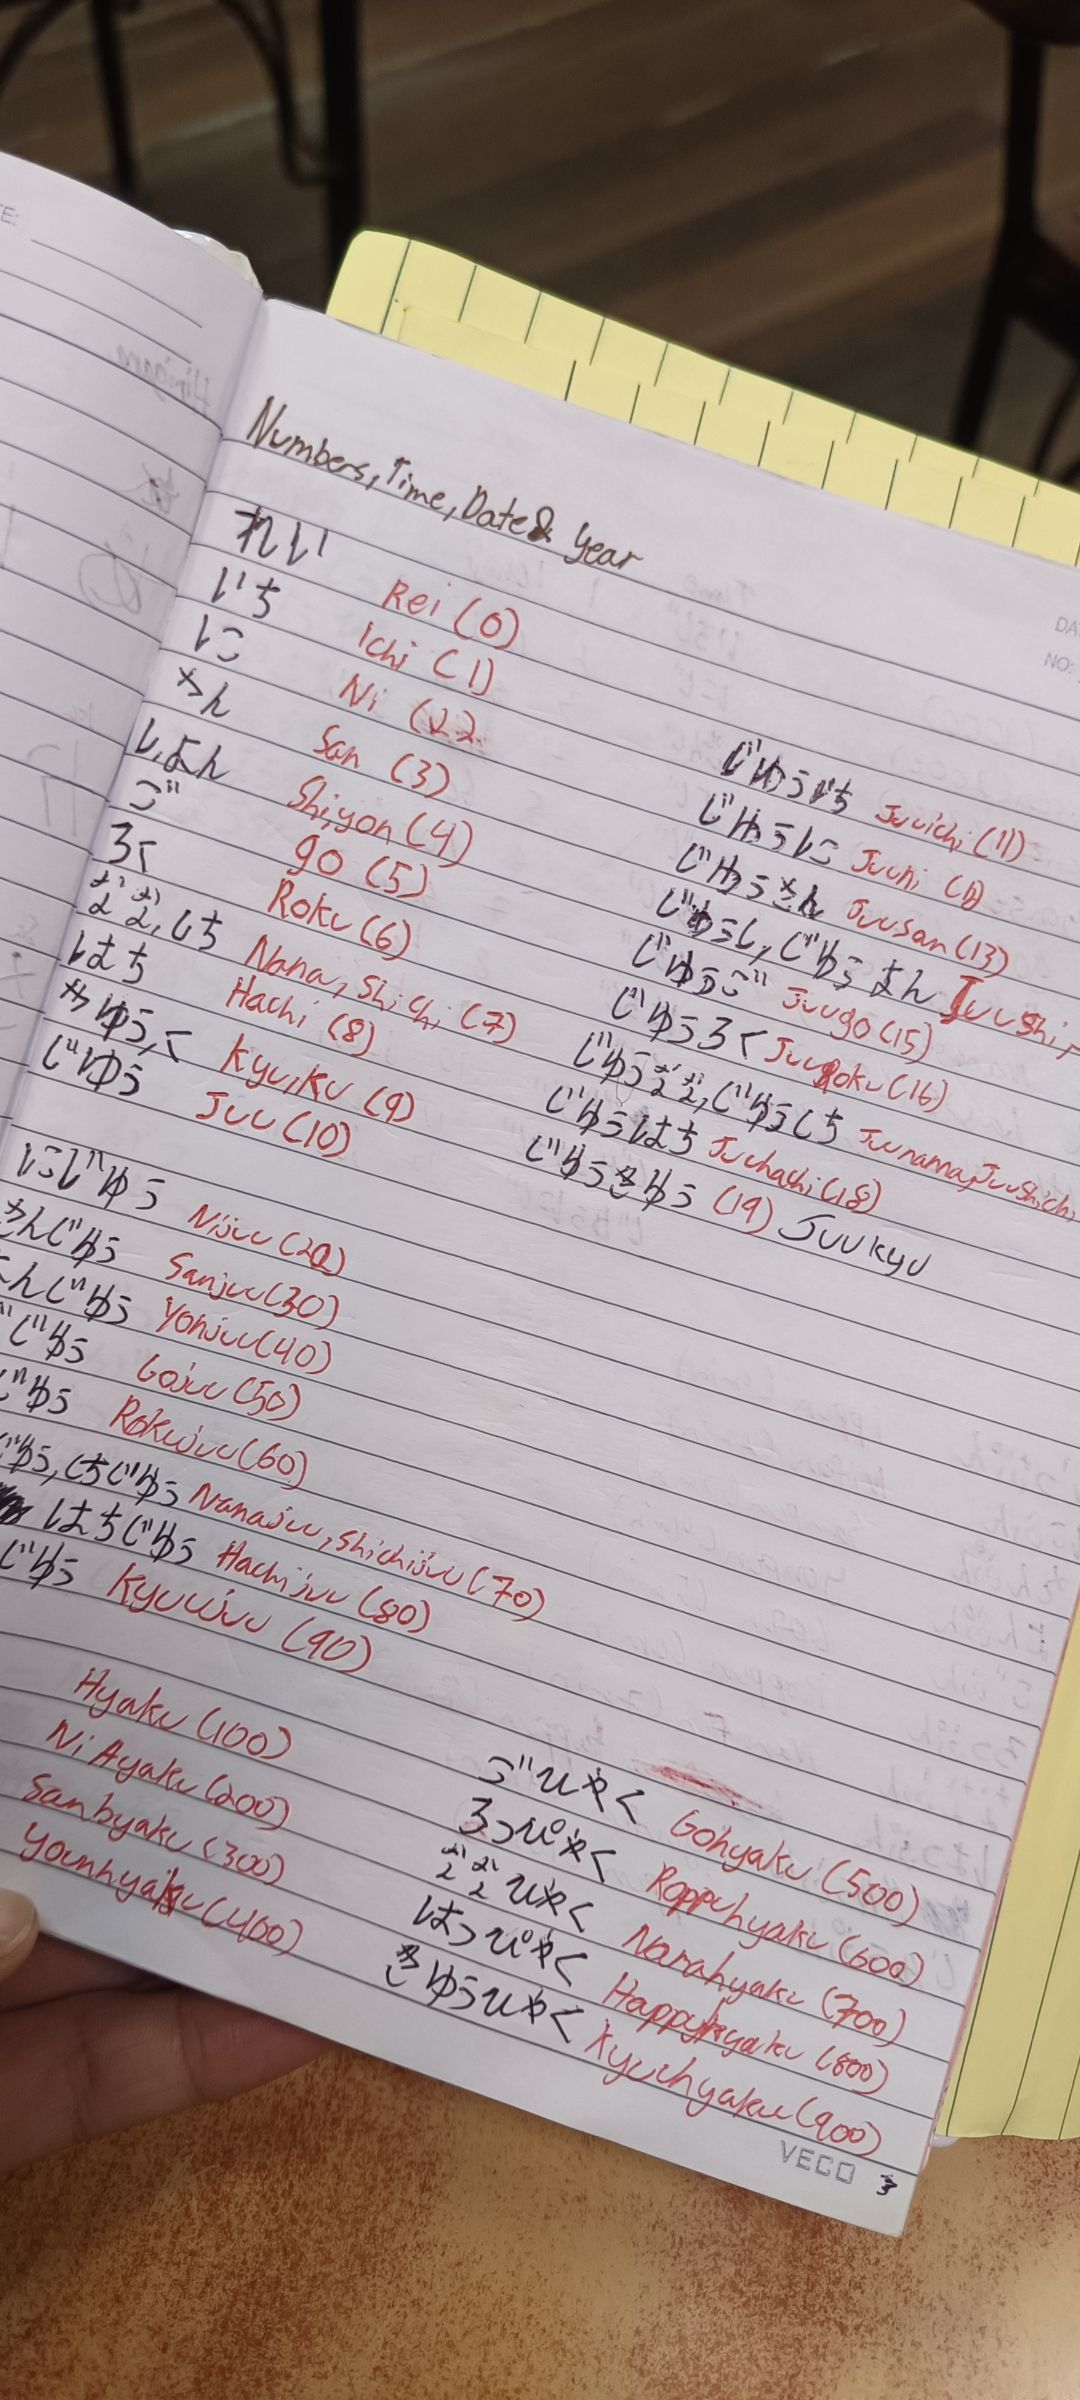 TE:
Numbers, Time, Date & Year
DA
NO:
れい Rei (0)
いち Ichi (1)
に Ni (22
さん San (3)
し,よん Shi,yon (4)
ご go (5)
ろく Roku (6)
なな,しち Nana, Shichi (7)
はち Hachi (8)
きゆう,く Kyu,ku (9)
じゆう Juu (10)
じゆういち Juuichi (11)
じゆうに Juuni
じゆうさん Juusan (13)
じゆうし,じゆうよん Juushi,
じゆうご Juugo (15)
じゆうろく JuuRoku (16)
じゆうなな,じゆうしち Juunana,JuuShichi
じゆうはち Juuhachi (18)
じゆうきゆう (19) Juukyu
にじゆう Nijuu (20)
さんじゆう Sanjuu (30)
よんじゆう Yonjuu (40)
ごじゆう Gojuu (50)
じゆう Rokujuu (60)
じゆう,しちじゆう Nanajuu, Shichijuu (70)
はちじゆう Hachijuu (80)
じゆう Kyuujuu (90)
Hyaku (100)
Ni Hyaku (200)
Sanbyaku (300)
Younhyaku (400)
ごひやく Gohyaku (500)
ろっぴやく Roppuhyaku (600)
ななひやく Nanahyaku (700)
はっぴやく Happyhyaku (800)
きゆうひやく Kyuuhyaku (900)
VECO 3